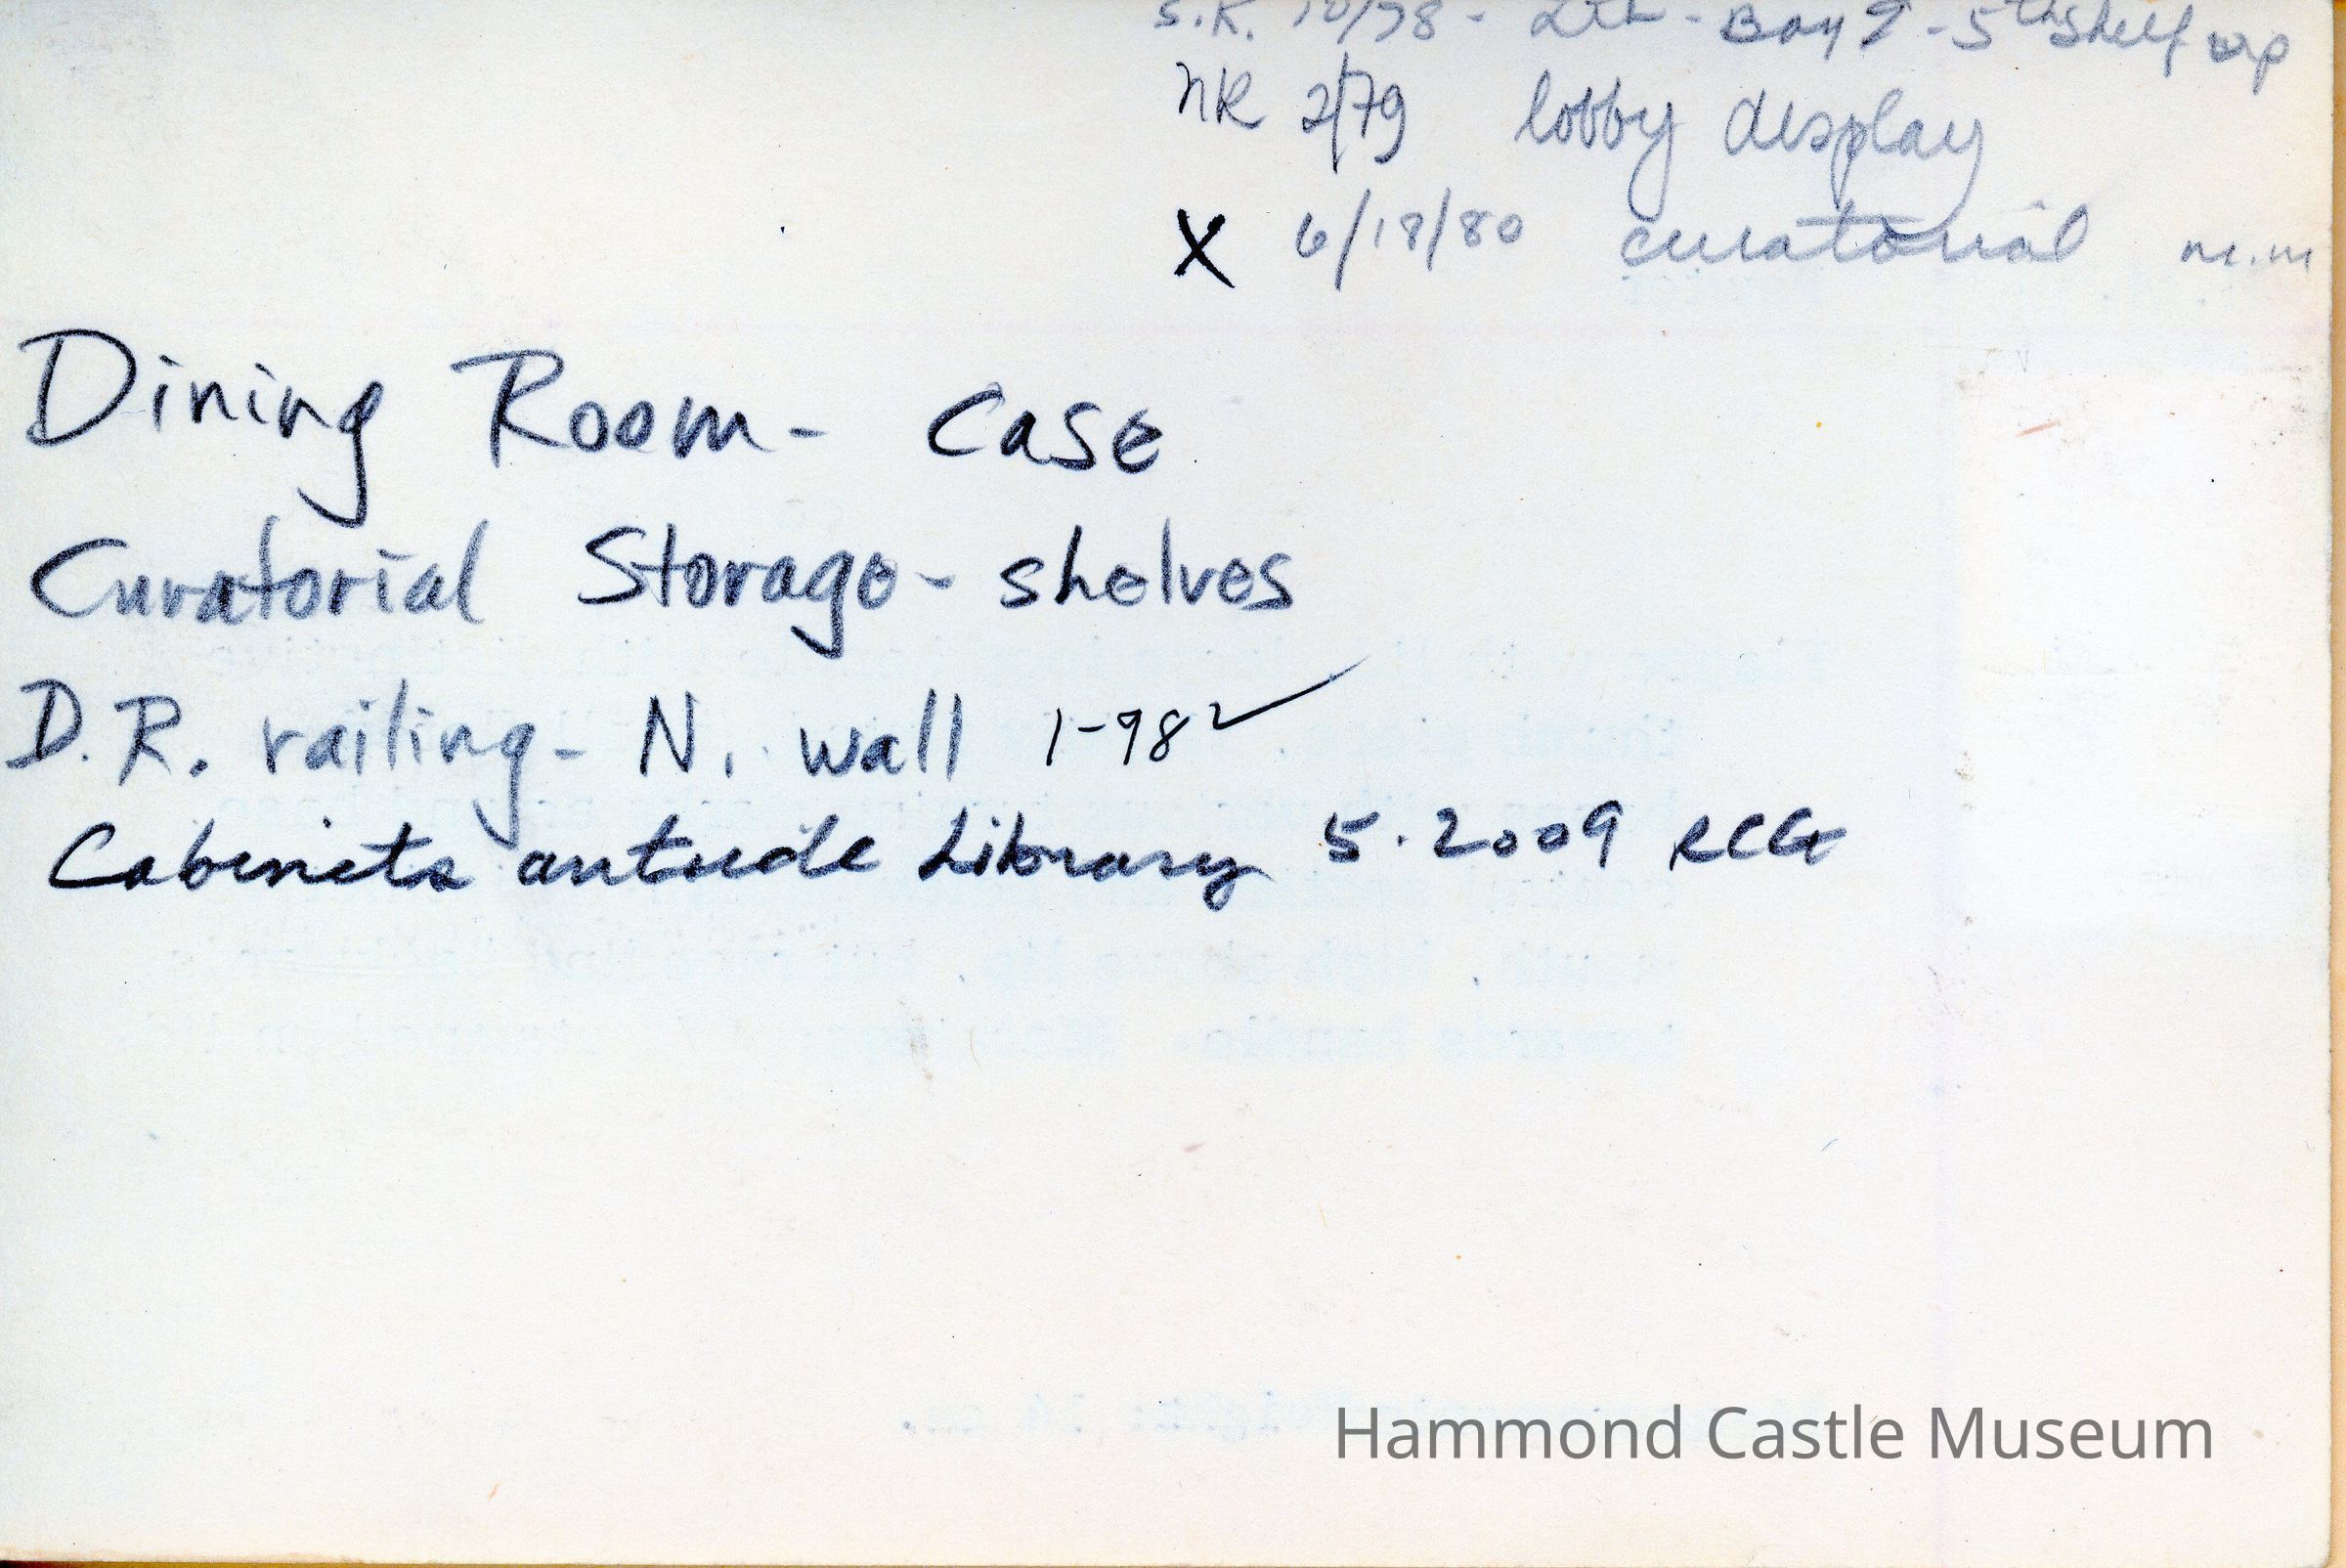 S.K. 10/78 - - Bay 2 - 5th shelf up
NR 2/79 lobby display
X 6/18/80 curatorial m.m
Dining Room - case
Curatorial Storage - shelves
D.R. railing - N. wall 1-98 ✓
Cabinets outside Library 5.2009 RCG
Hammond Castle Museum